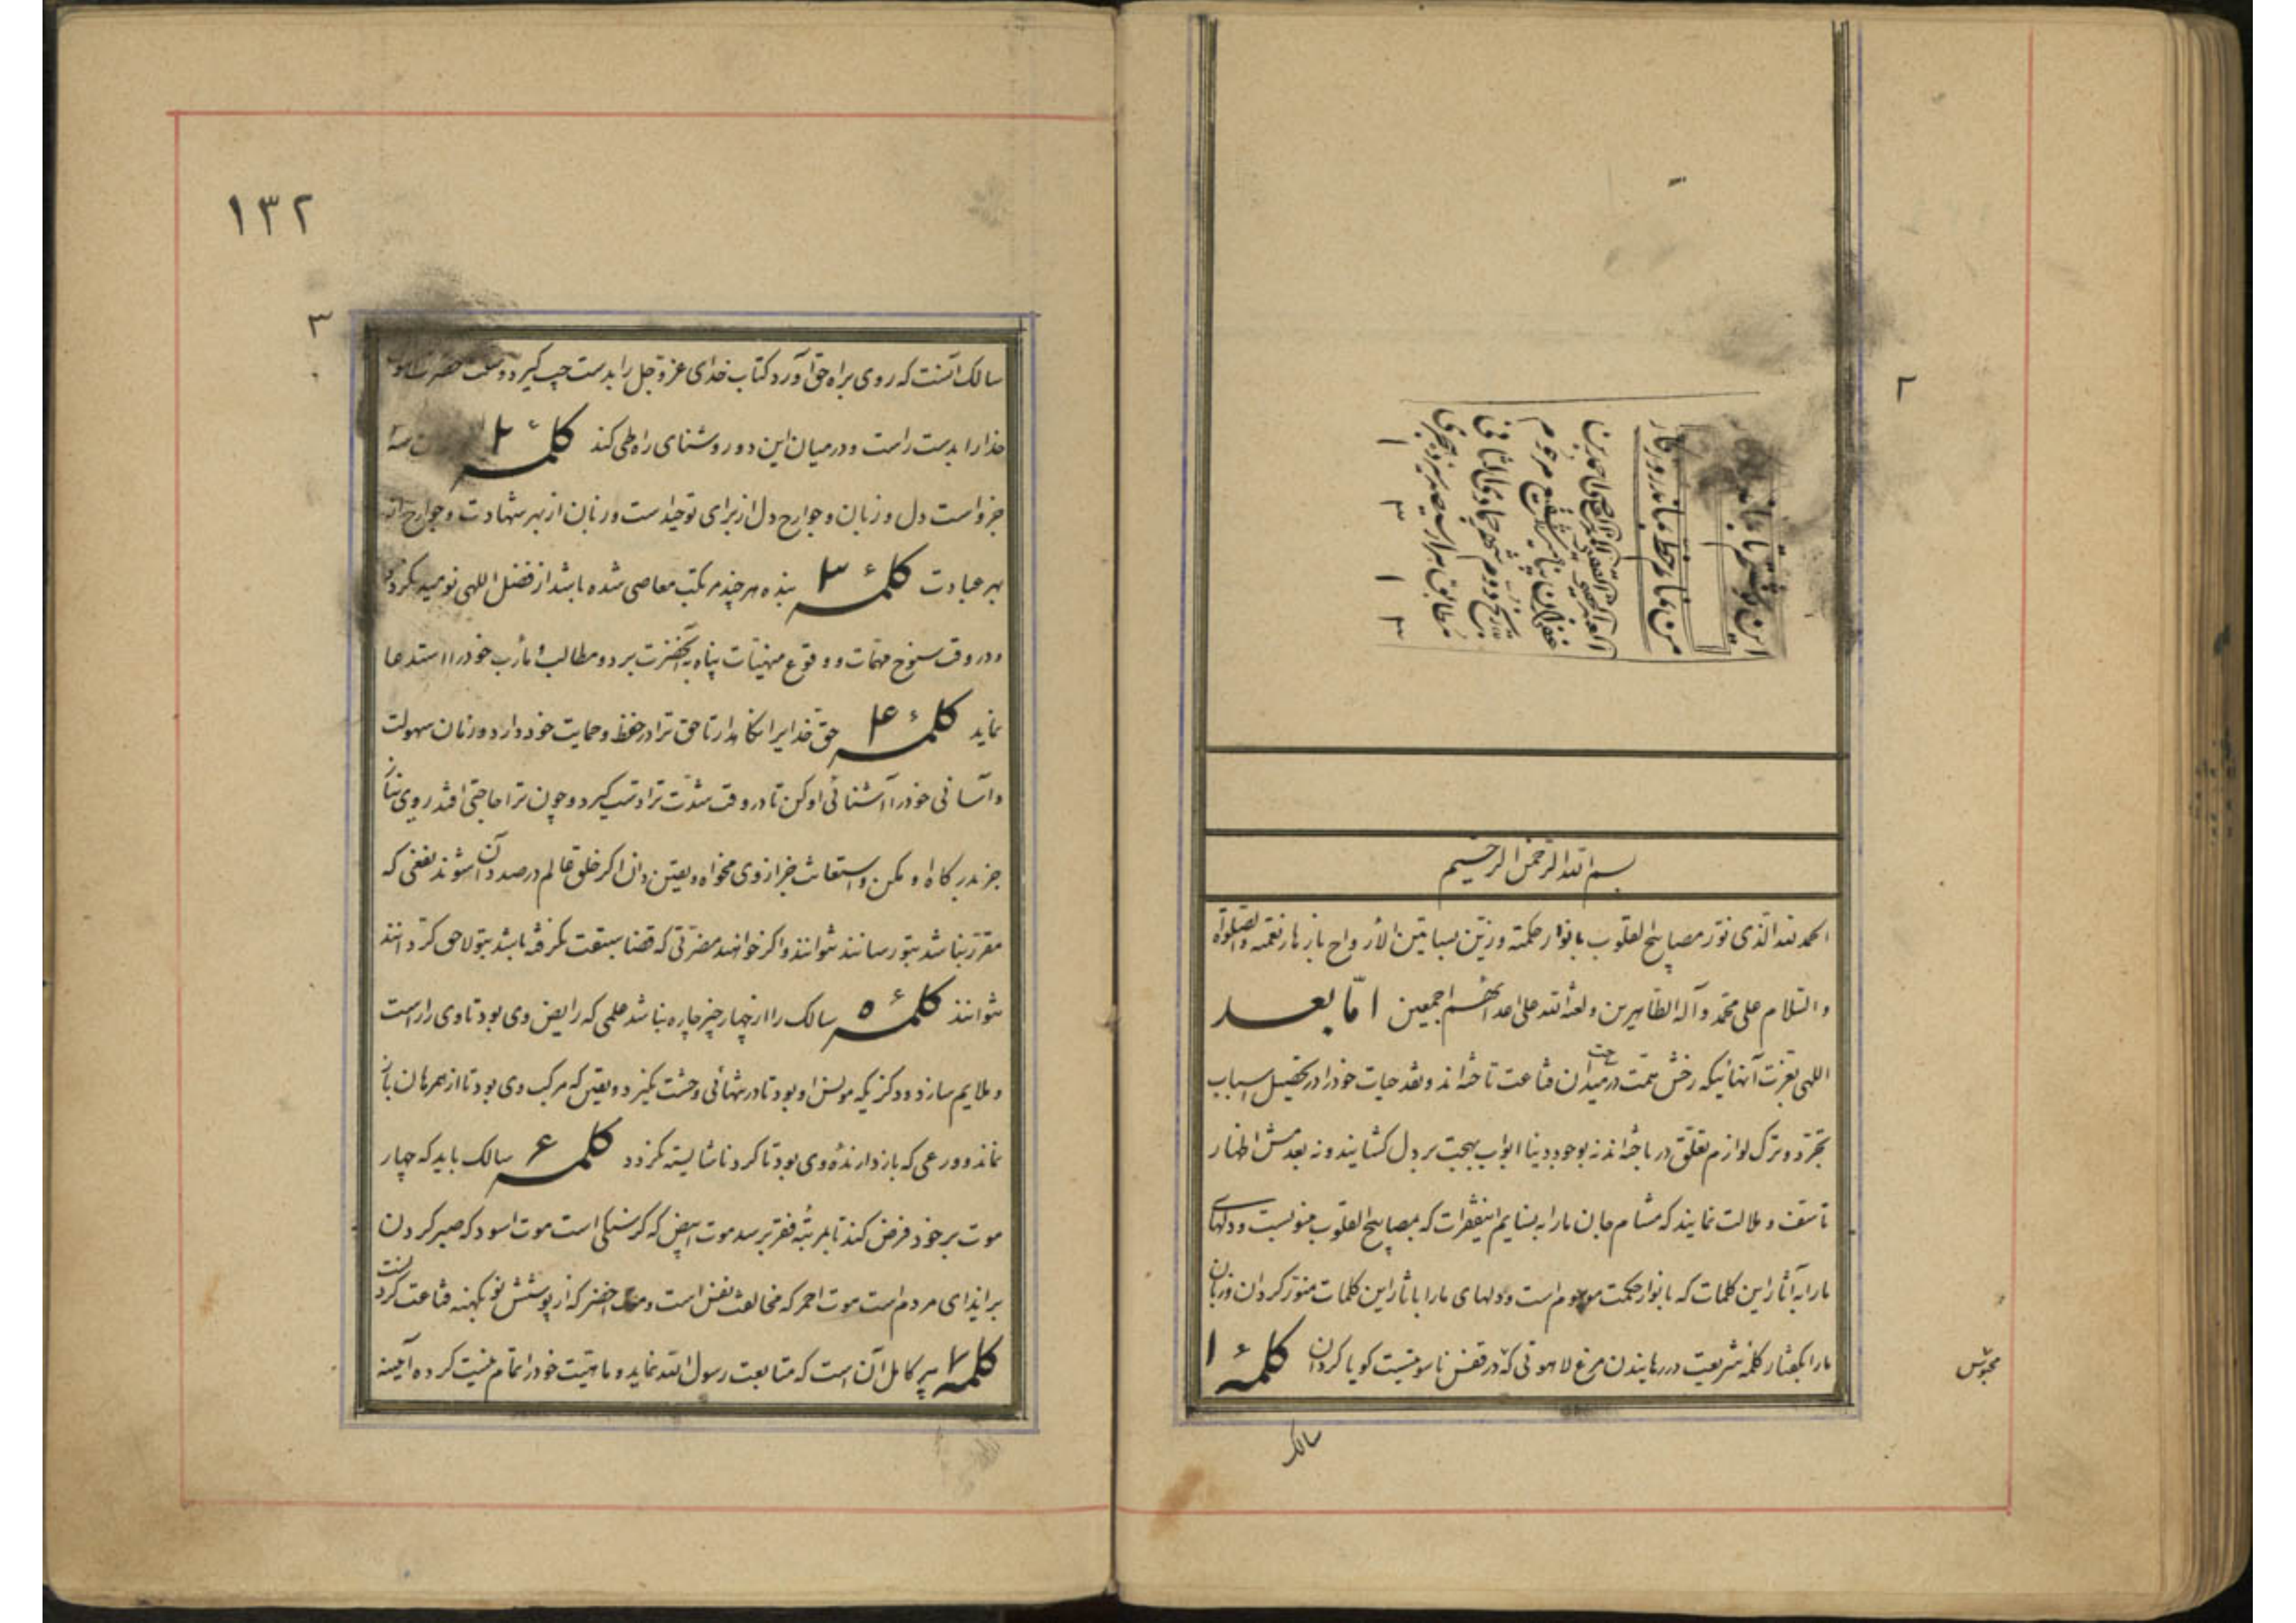 ۲
این نوشتم تا بماند
من نمانم خط بماند روزگار
بسم الله الرحمن الرحیم
الحمد لله الذی نور مصابیح القلوب بانوار حکمته و زین بساتین الأرواح بازهار نعمته والصلوة
والسلام علی محمد و آله الطاهرین ولعنة الله علی اعدائهم اجمعین امّا بعد
اللهی بعزت آنهائیکه رخش همت در میدان قناعت تاخته‌اند و نقد حیات خود را در تحصیل اسباب
تجرّد و ترک لوازم تعلّق درباخته‌اند نه بوجود دنیا ابواب بهجت بر دل گشایند و نه بعدمش اظهار
تاسف و ملالت نمایند که مشام جان ما را به نسایم اینفقرات که بمصابیح القلوب منسوبست و دلهای
ما را به آثار این کلمات که بانوار حکمت موسوم است و دلهای ما را باثار این کلمات منوّر کردان و زبان
ما را بگفتار کلمه شریعت در رهانیدن مرغ لاهوتی که در قفس ناسوتیست کویا کردان کلمهٔ ۱
محبوس
سالک
۱۳۲
۳
سالک آنست که روی براه حق آورد کتاب خدای عزوجل را بدست چپ گیرد و سنت حضرت رسول
خدا را بدست راست و در میان این دو روشنای راه طی کند کلمهٔ ۲ سه
جزو است دل و زبان و جوارح دل از برای توحید است و زبان از بهر شهادت و جوارح از
بهر عبادت کلمهٔ ۳ بنده هر چند مرتکب معاصی شده باشد از فضل اللهی نومید نکردد
و در وقت سنوح مهمات و وقوع منهیات پناه به آنحضرت برد و مطالب و مأرب خود را استدعا
نماید کلمهٔ ۴ حق خدایرا نگاهدار تا حق ترا در حفظ و حمایت خود دارد و زمان سهولت
و آسانی خود را آشنائی او کن تا در وقت شدّت ترا دست گیرد و چون ترا حاجتی افتد روی نیاز
جز بدرگاه او مکن و استعانت جز از وی مخواه و یقین دان اگر خلق عالم در صدد آن شوند نفعی که
مقرر نباشد بتو رسانند نتوانند و اگر خواهند مضرّتی که قضا سبقت نکرفته باشد بتو لاحق کردانند
نتوانند کلمهٔ ۵ سالک را از چهار چیز چاره نباشد علمی که رایض وی بود تا وی را راست
و ملایم سازد و ذکریکه مونس او بود تا در تنهائی وحشت نگیرد و یقین که مرکب وی بود تا از همرهان باز
نماند و ورعی که بازدارندهٔ وی بود تا کرد ناشایسته نکردد کلمهٔ ۶ سالک باید که چهار
موت بر خود فرض کند تا بمرتبهٔ فقر برسد موت ابیض که کرسنکی است موت اسود که صبر کردن
بر ایذای مردم است موت احمر که مخالفت نفس است و موت اخضر که از پوشش نو بکهنه قناعت کردنست
کلمهٔ ۷ پیر کامل آن است که متابعت رسول الله نماید و ماهیّت خود را تمام نیست کرده آیینه